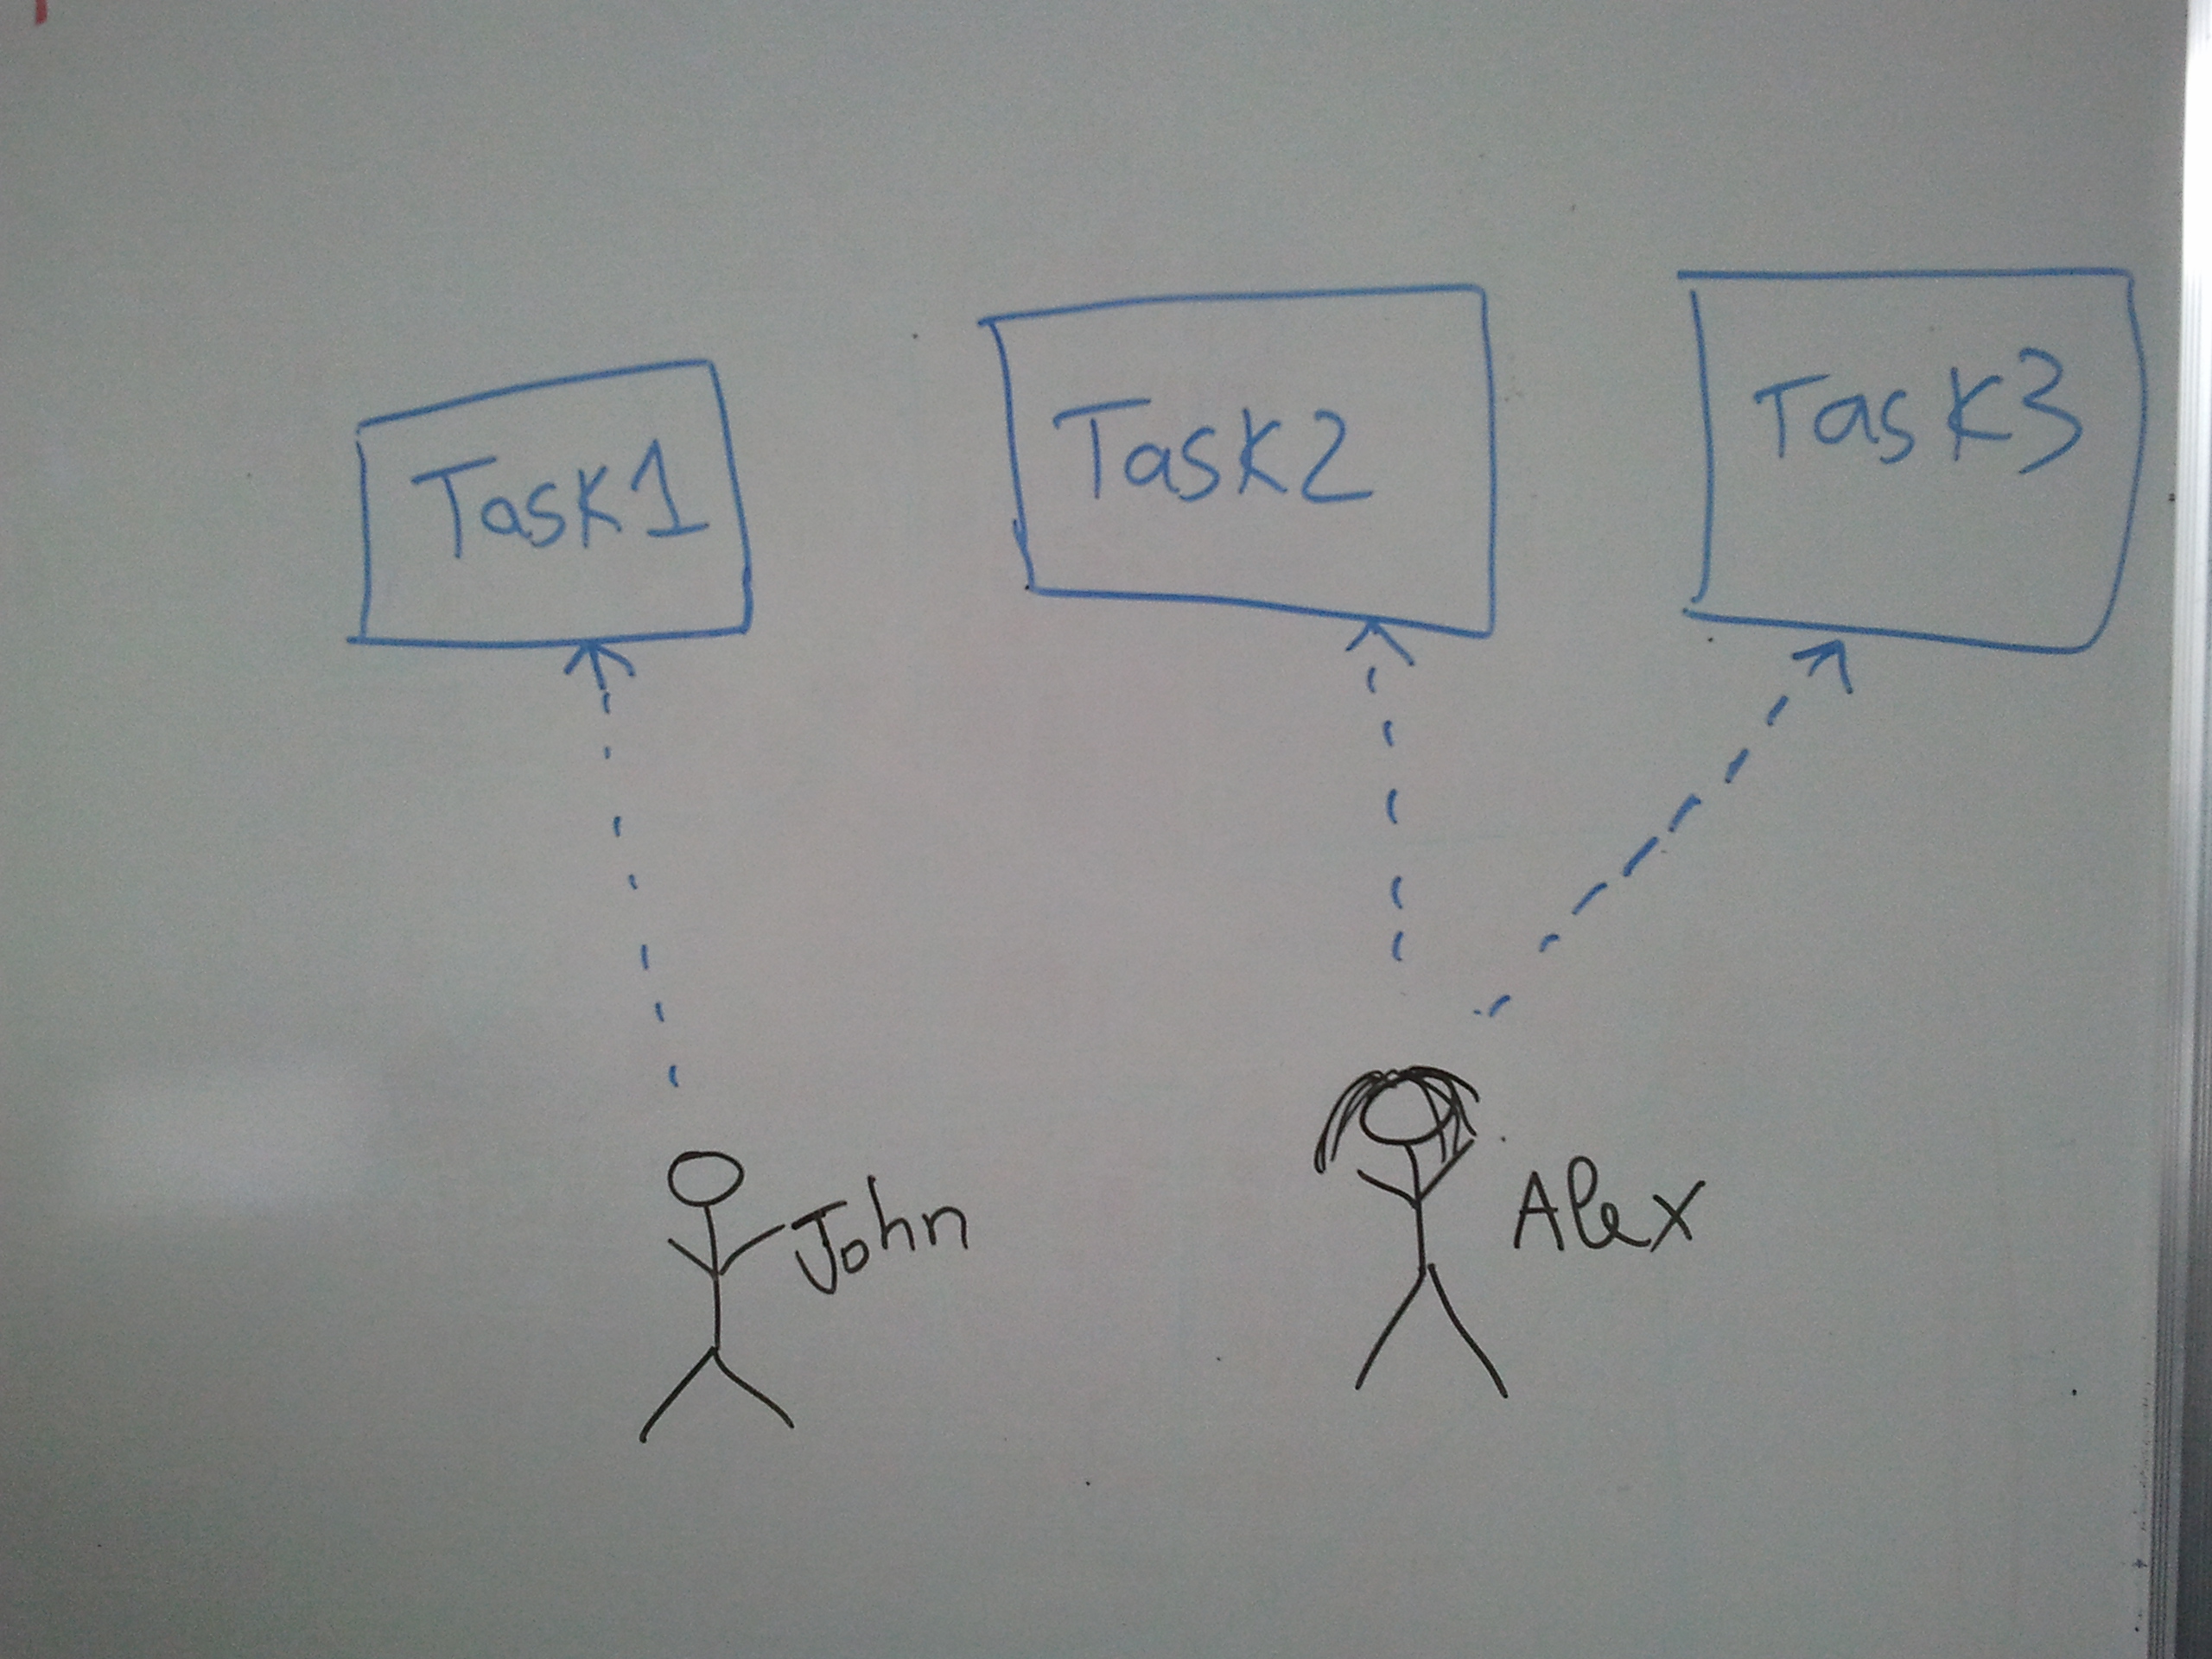 Task1
Task2
Task3
John
Alex